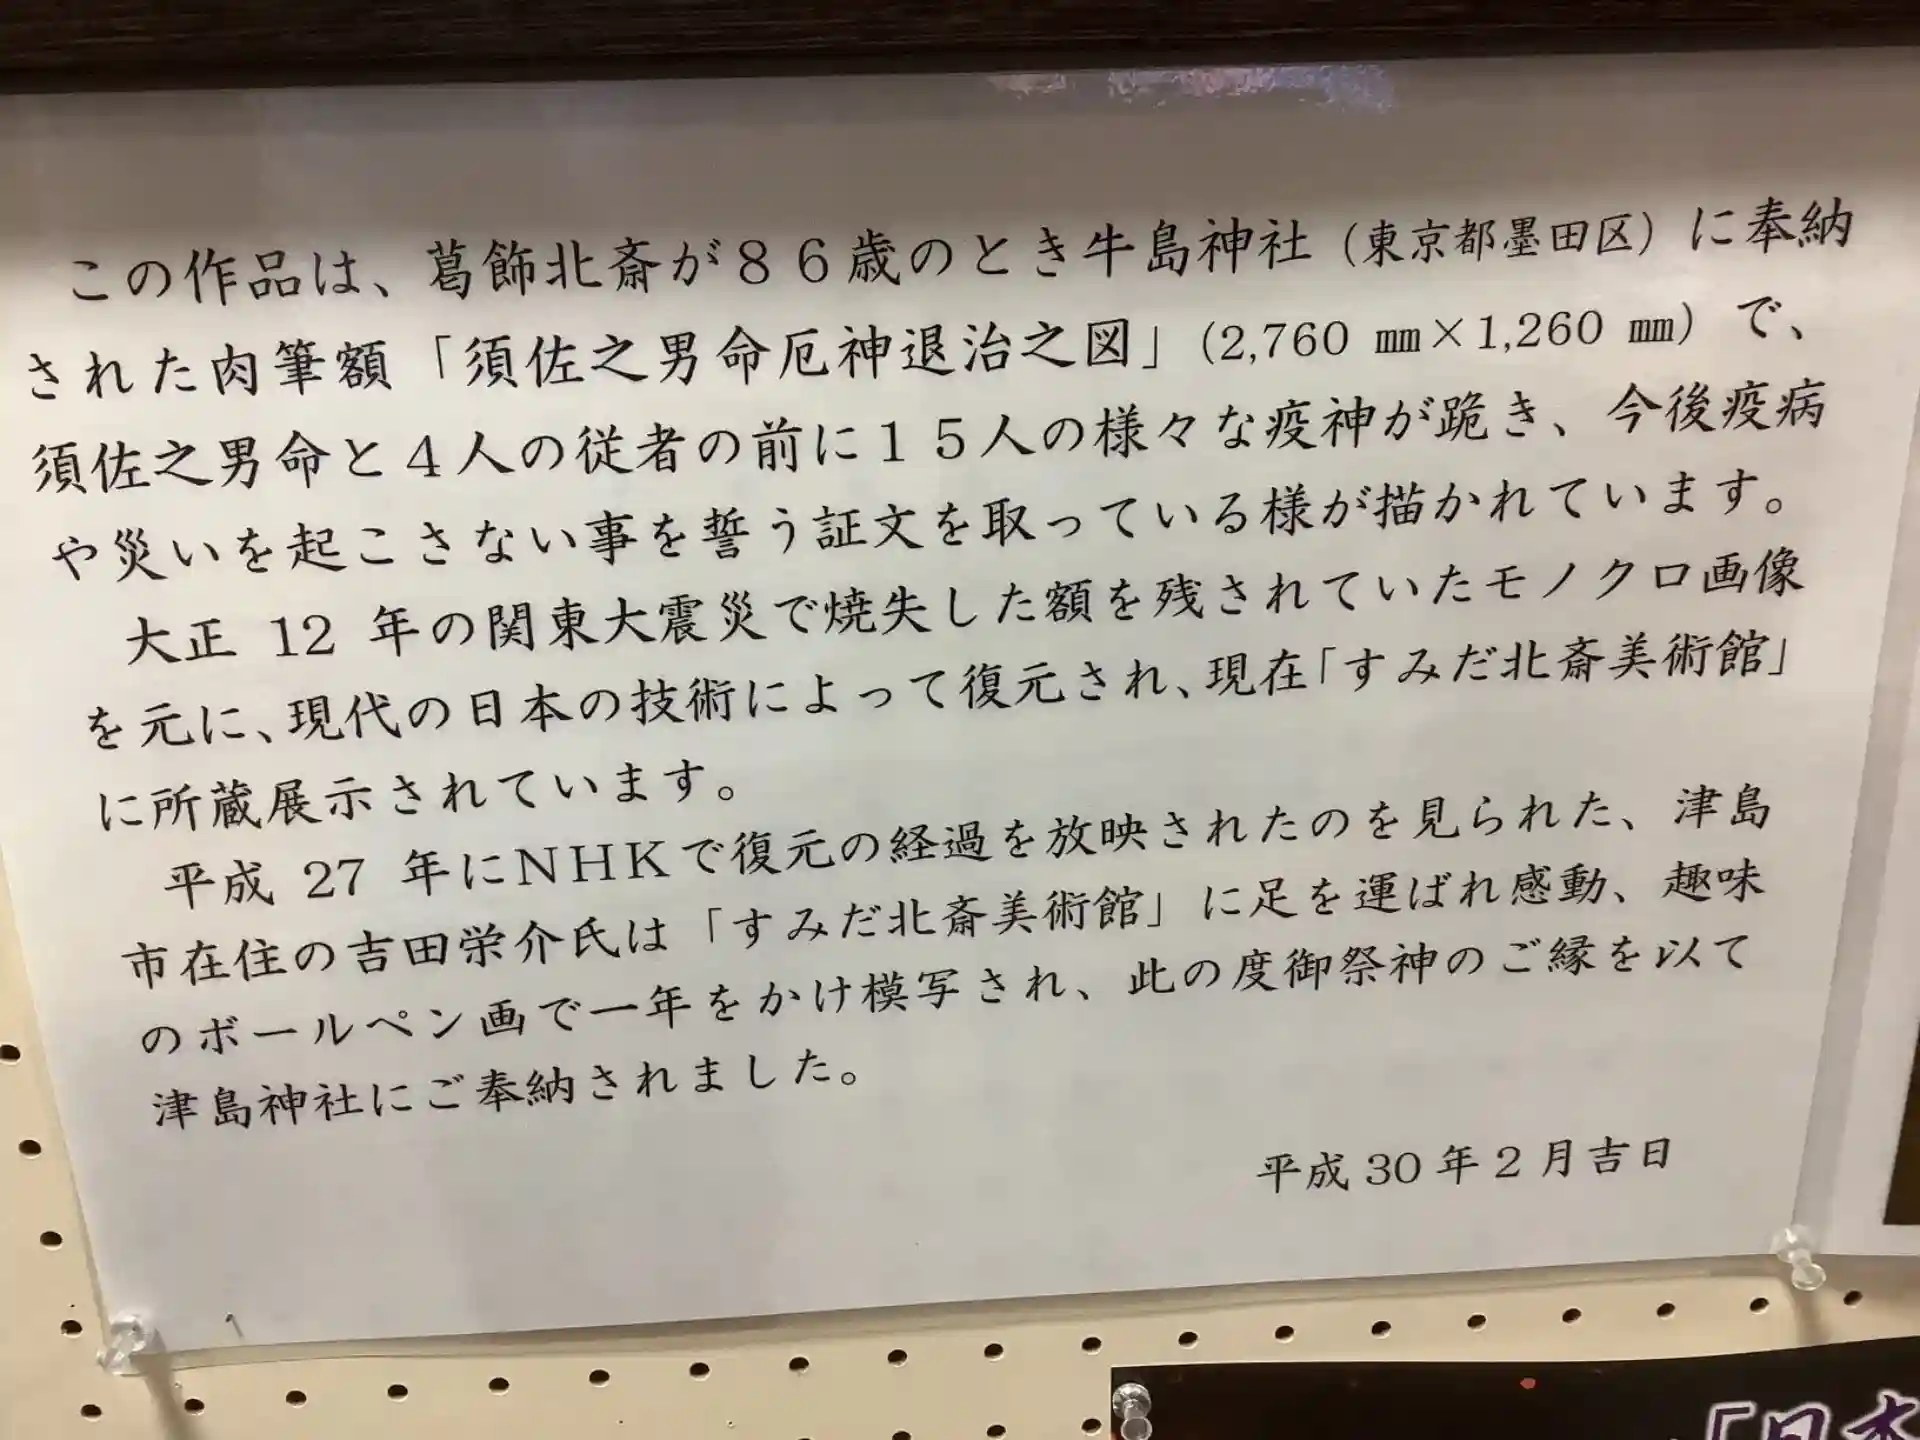 この作品は、葛飾北斎が８６歳のとき牛島神社（東京都墨田区）に奉納
された肉筆額「須佐之男命厄神退治之図」(2,760 ㎜×1,260 ㎜）で、
須佐之男命と４人の従者の前に１５人の様々な疫神が跪き、今後疫病
や災いを起こさない事を誓う証文を取っている様が描かれています。
大正 12 年の関東大震災で焼失した額を残されていたモノクロ画像
を元に、現代の日本の技術によって復元され、現在「すみだ北斎美術館」
に所蔵展示されています。
平成 27 年にＮＨＫで復元の経過を放映されたのを見られた、津島
市在住の吉田栄介氏は「すみだ北斎美術館」に足を運ばれ感動、趣味
のボールペン画で一年をかけ模写され、此の度御祭神のご縁を以て
津島神社にご奉納されました。
平成 30 年 2 月吉日
「日本